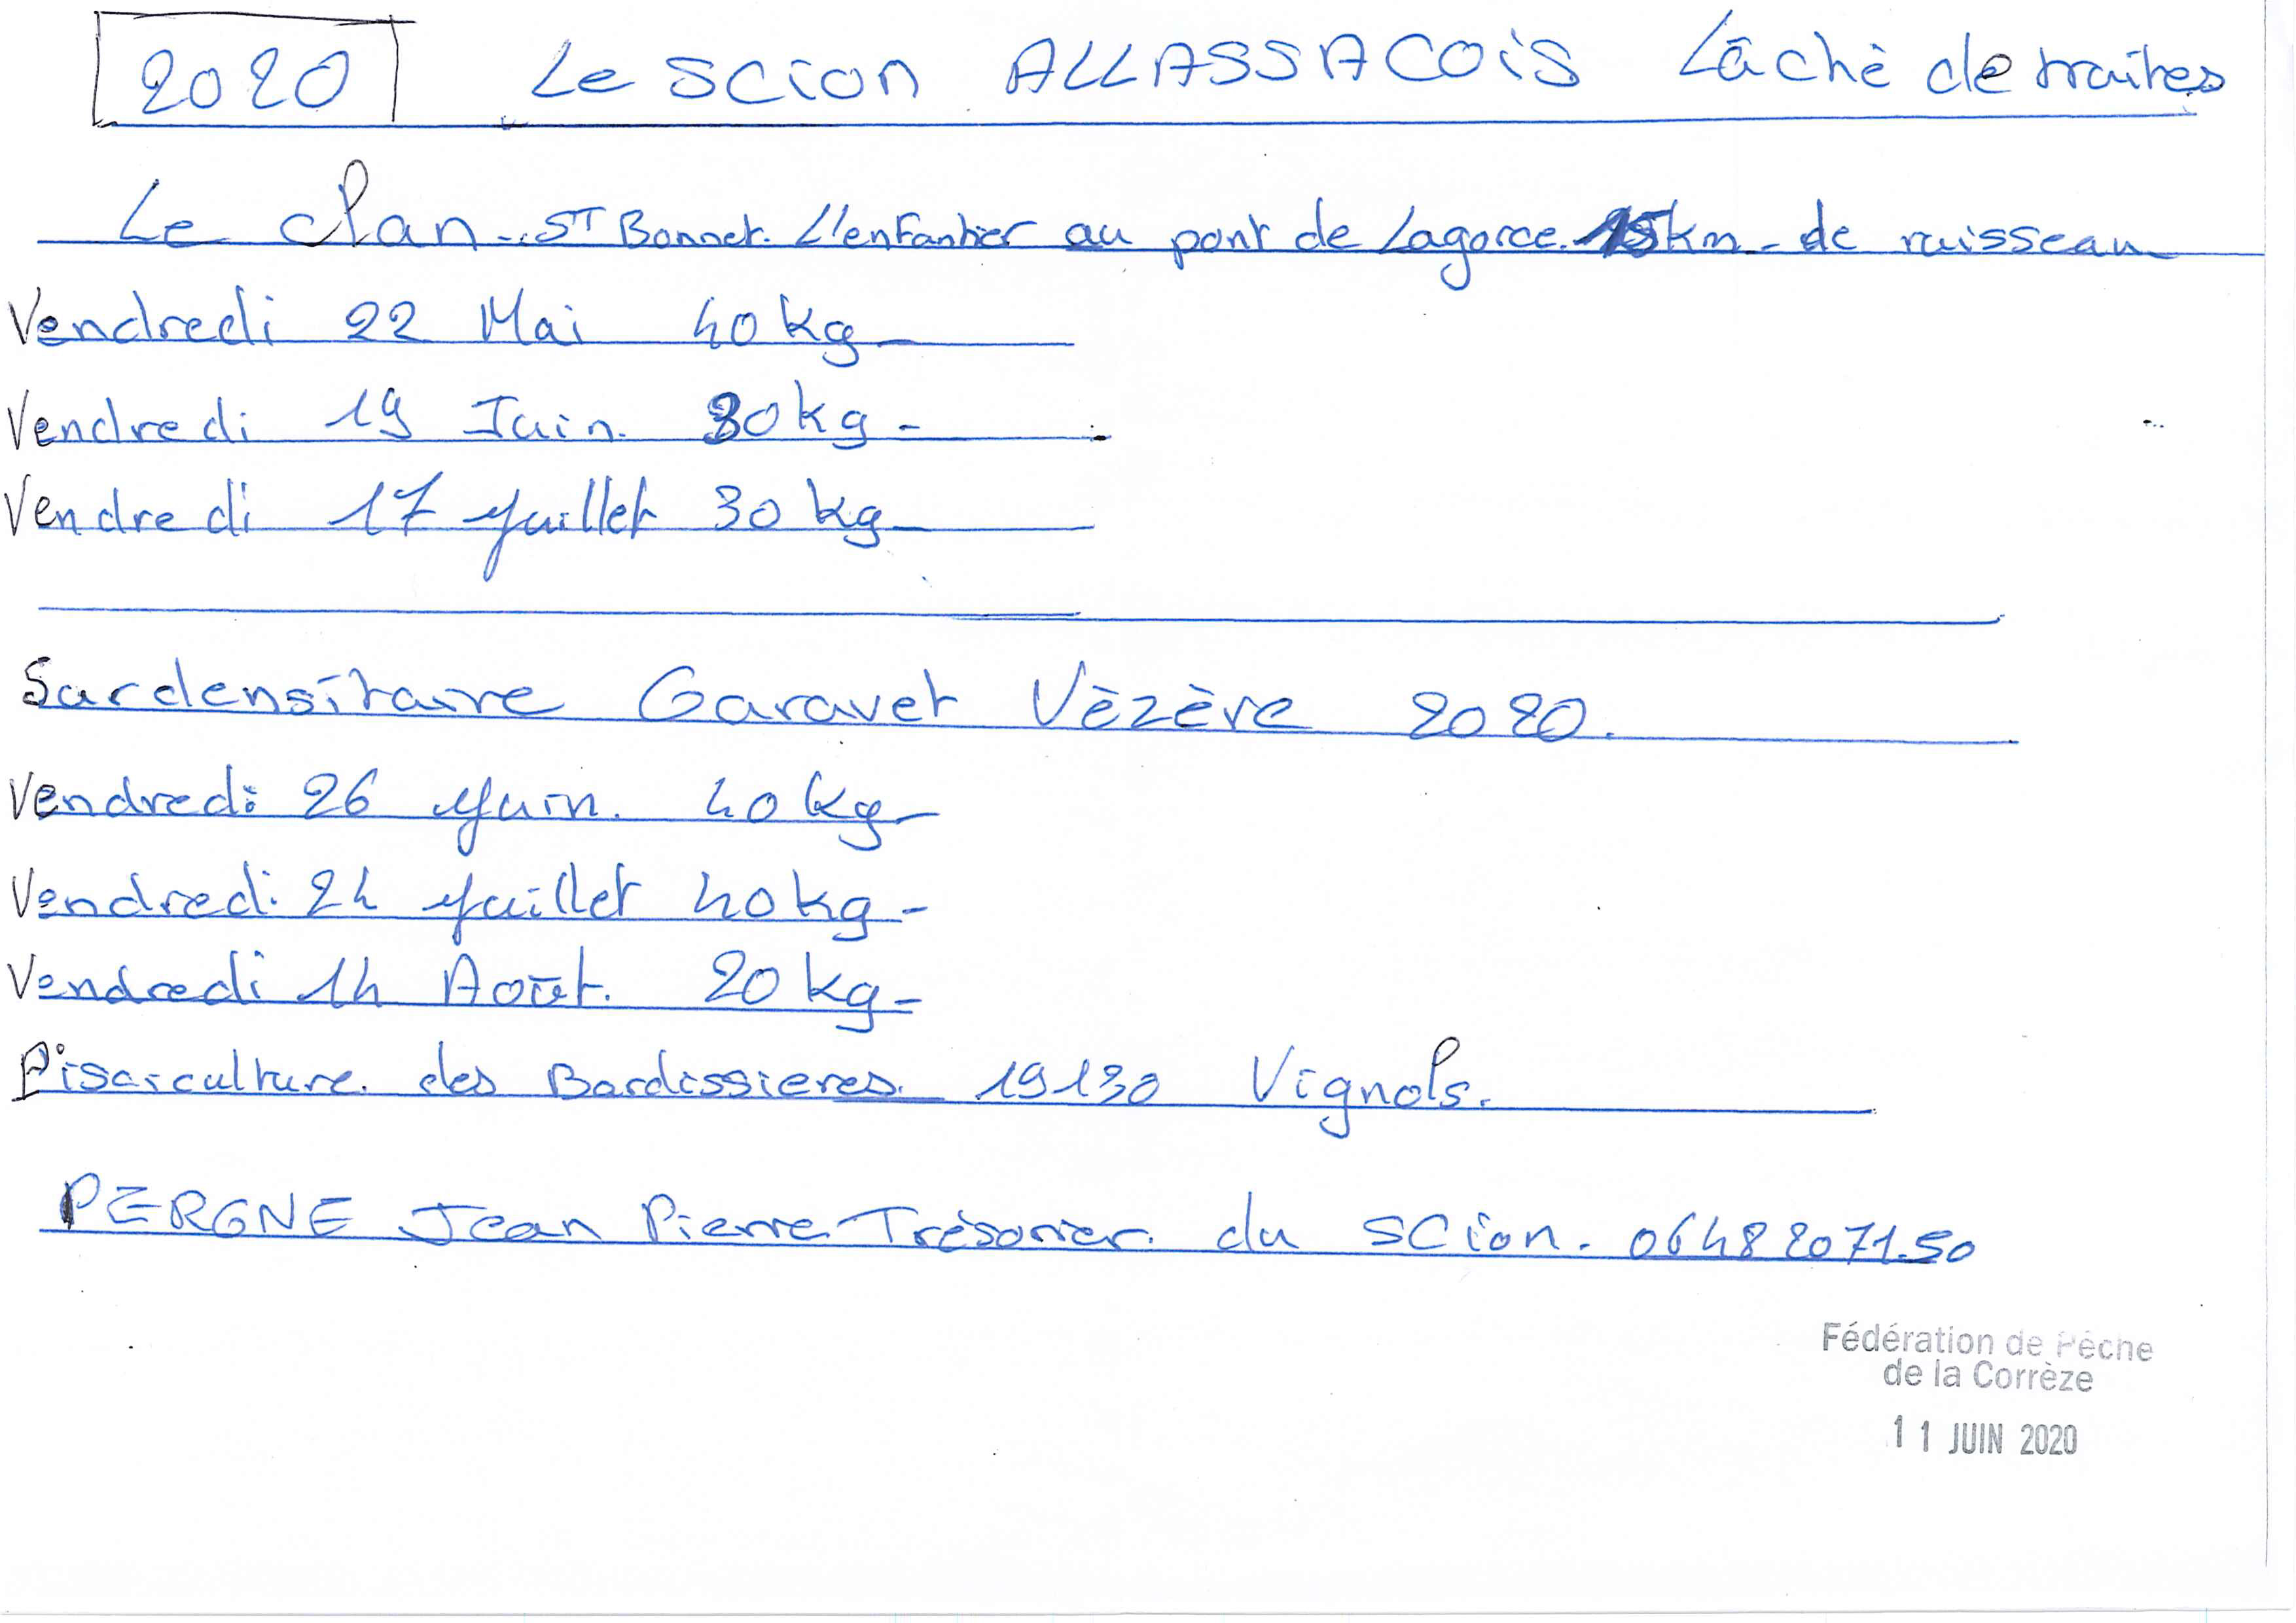 2020 Le SCion ALLASSACOiS Lâché de truites
Le Clan - ST Bonnet L'enfantier au pont de Lagorce. 15km - de ruisseau
Vendredi 22 Mai 40 kg
Vendredi 19 Juin. 30 kg -
Vendredi 17 Juillet 30 kg
Surdensitaire Garavet Vèzère 2020.
Vendredi 26 Juin. 40 kg -
Vendredi 24 Juillet 40 kg -
Vendredi 14 Août. 20 kg -
Pisciculture des Bardissieres. 19130 Vignols.
PERGNE Jean Pierre Trésorier. du SCion. 0648207150
Fédération de Pêche
de la Corrèze
11 JUIN 2020